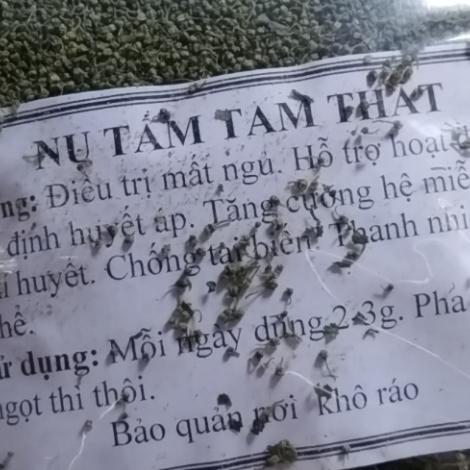 NỤ TẤM TAM THẤT
ng: Điều trị mất ngủ. Hỗ trợ hoạt
định huyết áp. Tăng cường hệ miễ
huyết. Chống tai biến. Thanh nhi
hể.
ử dụng: Mỗi ngày dùng 2-3g. Pha
ngọt thì thôi.
Bảo quản nơi khô ráo